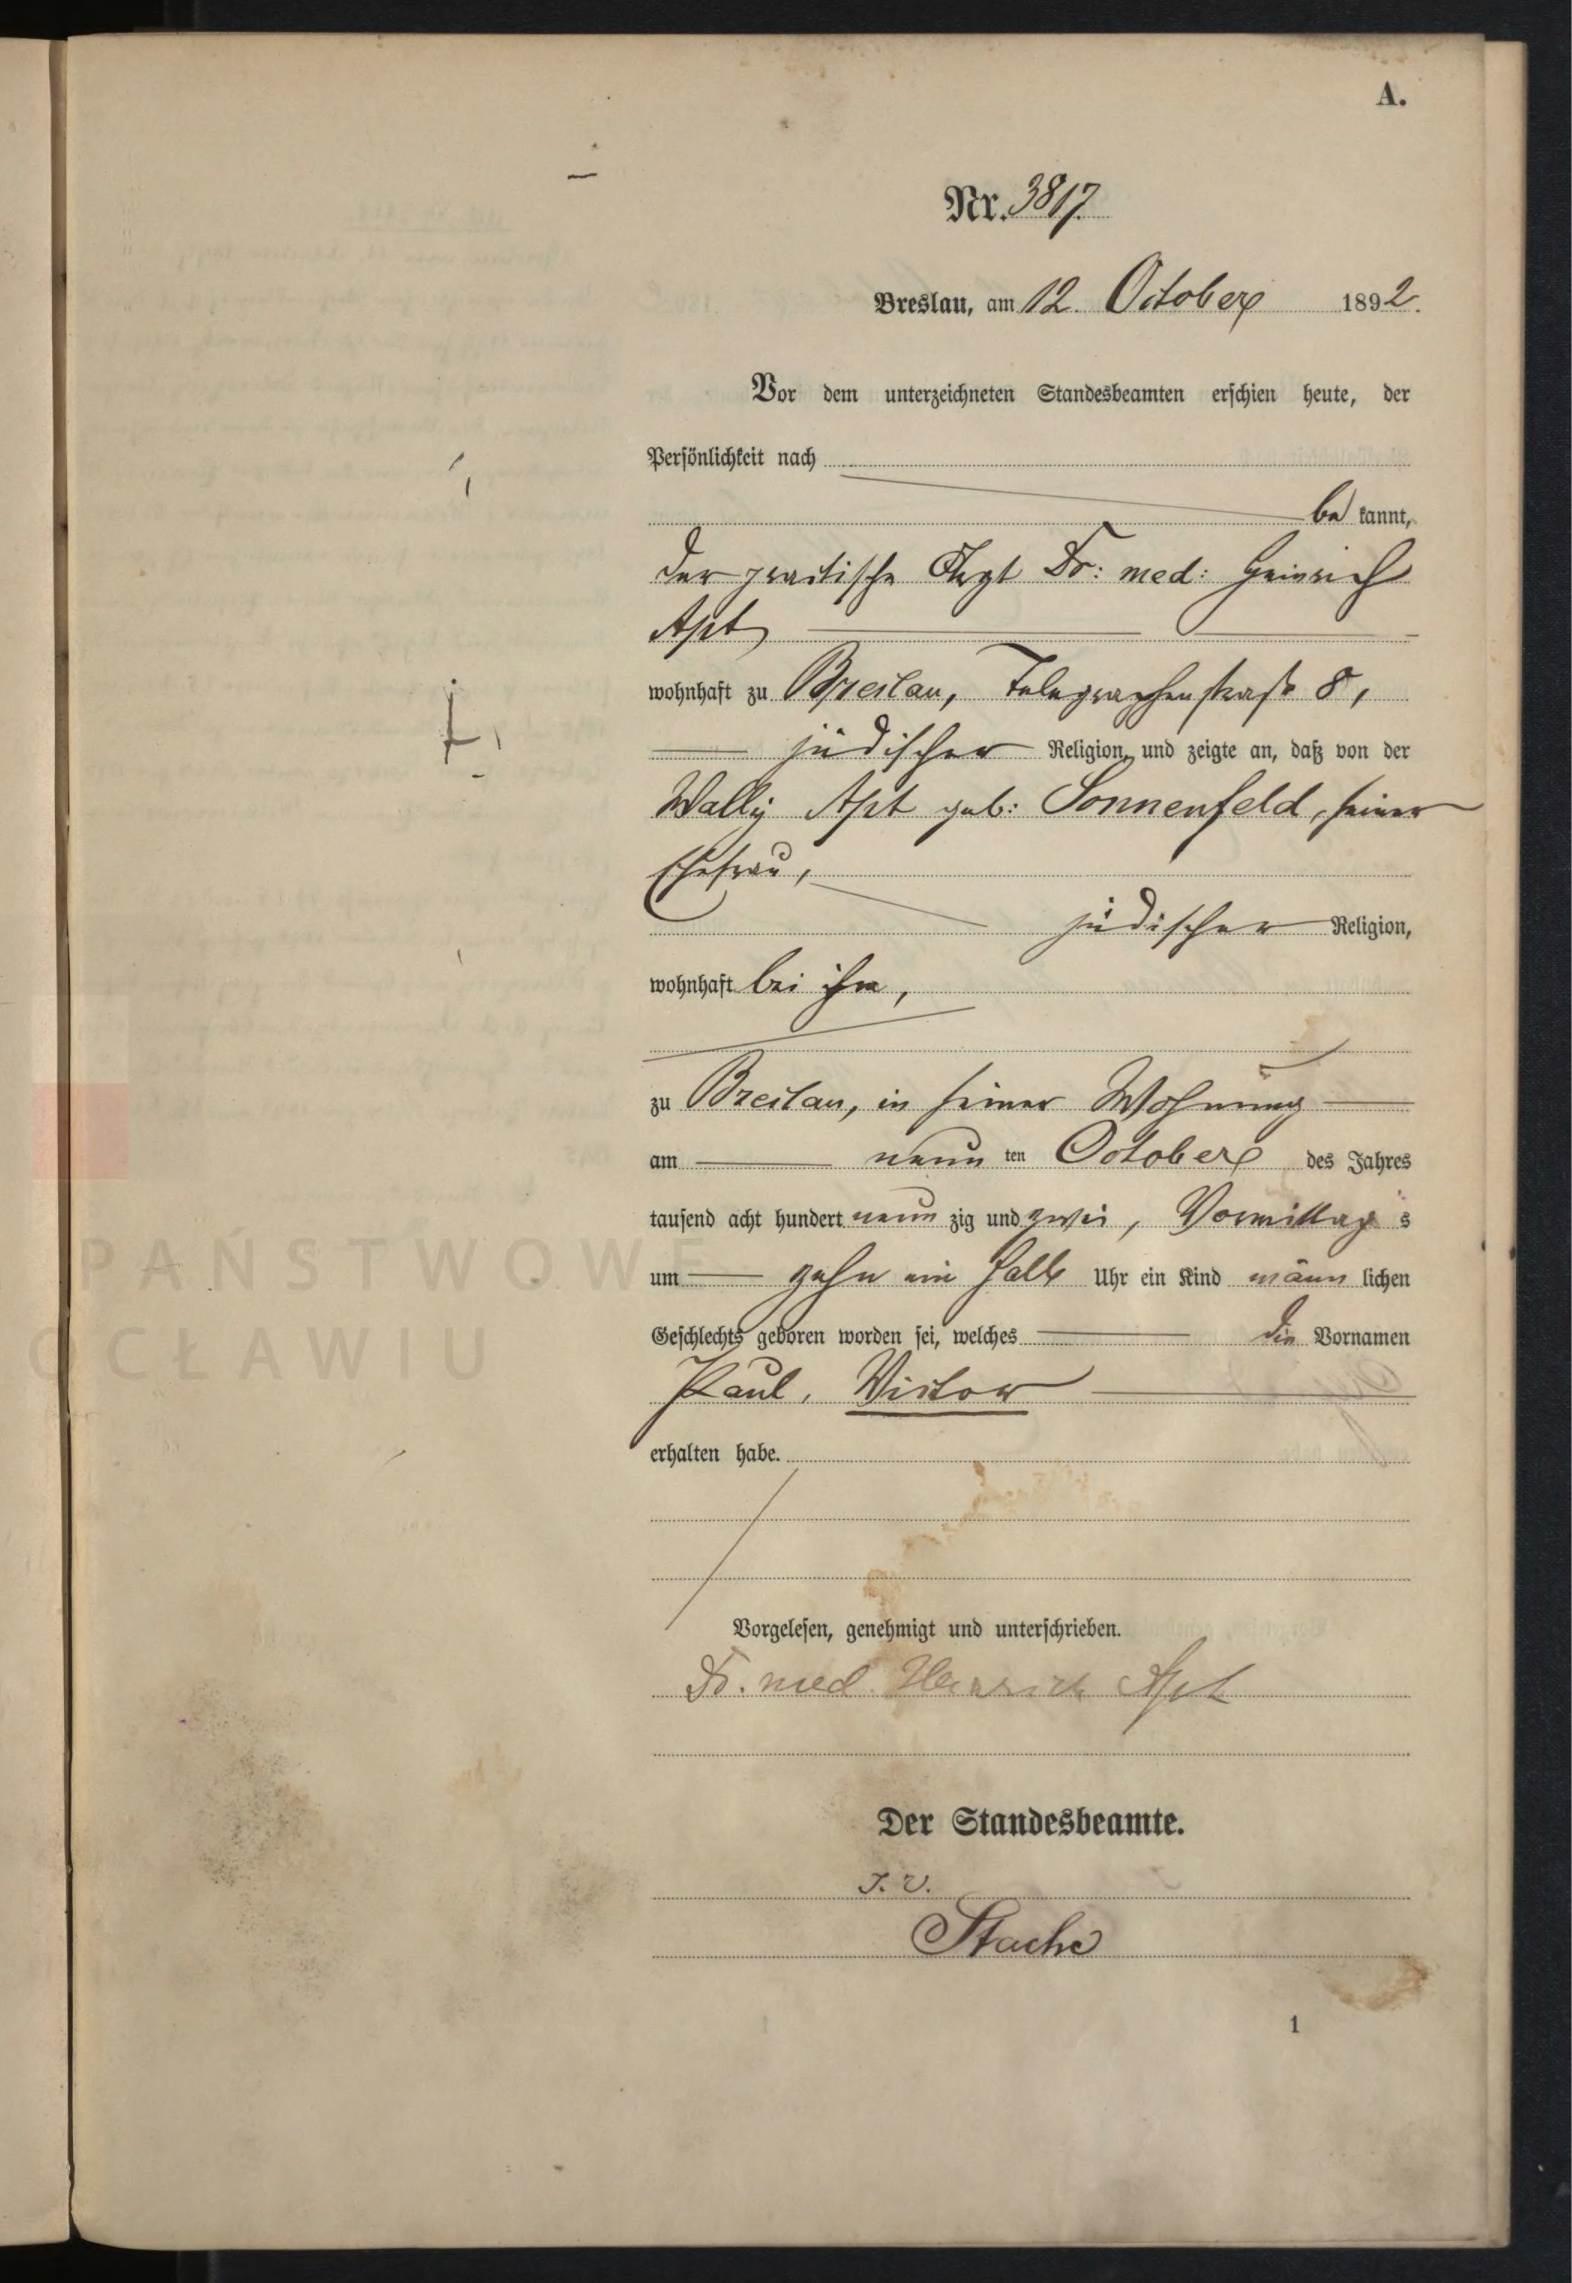 A.
Nr. 3817.
Breslau, am 12. October 1892.
Vor dem unterzeichneten Standesbeamten erschien heute, der
Persönlichkeit nach
be kannt,
der practische Arzt Dr: med: Heinrich
Apt
wohnhaft zu Breslau, Telegraphenstraße 8,
jüdischer Religion, und zeigte an, daß von der
Wally Apt geb: Sonnenfeld, seiner
Ehefrau,
jüdischer Religion,
wohnhaft bei ihm,
zu Breslau, in seiner Wohnung
am neun ten October des Jahres
tausend acht hundert neun zig und zwei, Vormittag s
um zehn ein halb Uhr ein Kind männ lichen
Geschlechts geboren worden sei, welches die Vornamen
Paul, Victor
erhalten habe.
Vorgelesen, genehmigt und unterschrieben.
Dr. med. Heinrich Apt
Der Standesbeamte.
I. V.
Stache
1
PAŃSTWOWE
OCŁAWIU